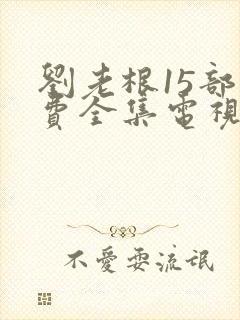 劉老根15部
費全集電視
不愛耍流氓